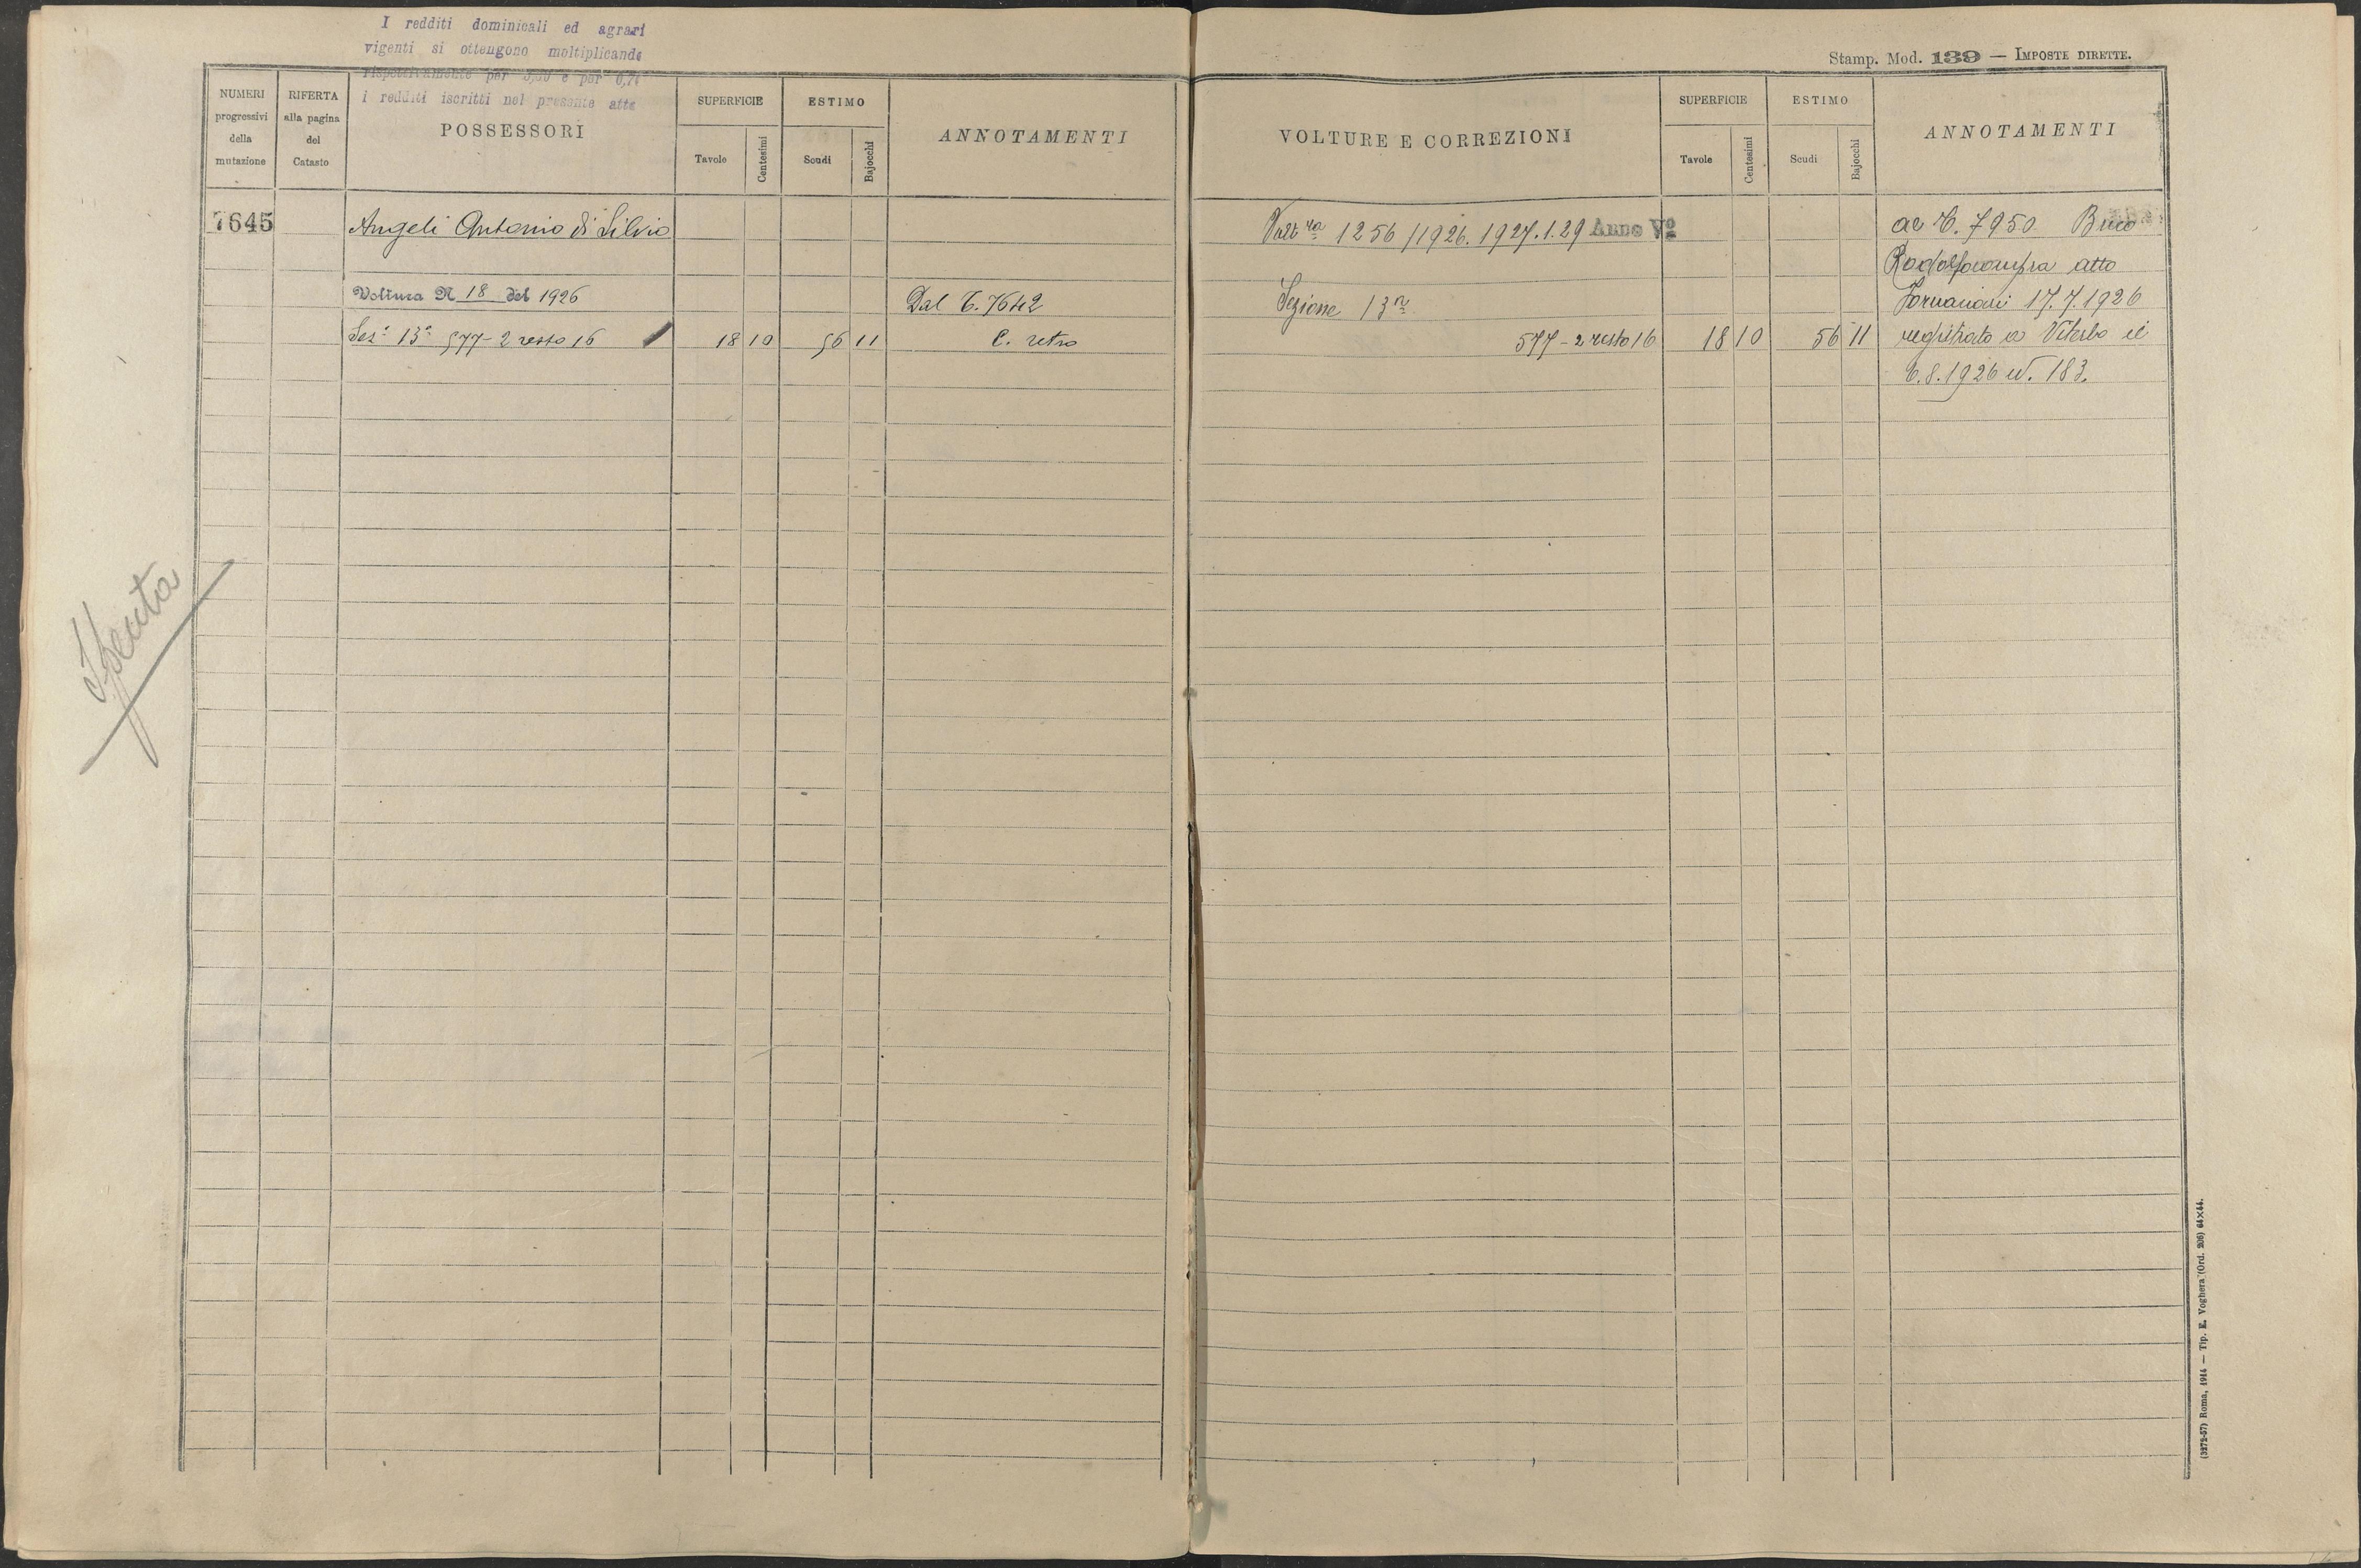 I redditi dominicali ed agrari
vigenti si ottengono moltiplicando
rispettivamente per e per
i redditi iscritti nel presente atto
NUMERI progressivi della mutazione
RIFERTA alla pagina del Catasto
POSSESSORI
SUPERFICIE
Tavole
Centesimi
ESTIMO
Scudi
Bajocchi
ANNOTAMENTI
7645
Angeli Antonio di Silvio
Voltura N 18 del 1926
Dal C. 7642
Sez.e 13a 577-2 resto 16 18 10 56 11 C. retro
Isenta
Stamp. Mod. 139 — IMPOSTE DIRETTE.
VOLTURE E CORREZIONI
SUPERFICIE
Tavole
Centesimi
ESTIMO
Scudi
Bajocchi
ANNOTAMENTI
Volt ra 1256/1926. 1927.1.29 Anno Vo
al C. 7950
Rodolfo compra atto
Sezione 13a
17.7.1926
577-2 resto 16 18 10 56 11
registrato a Viterbo il
6.8.1926 N. 183.
(3272-57) Roma, 1914 — Tip. E. Voghera (Ord. 206) 64×44.